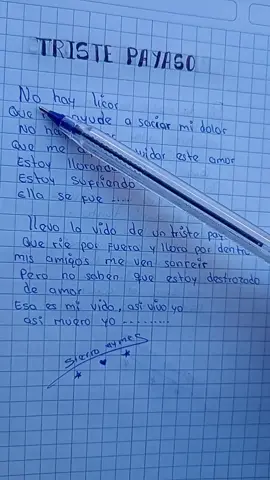 TRISTE PAYASO
No hay licor
Que ayude a saciar mi dolor
No ha
Que me vidar este amor
Estoy llorando
Estoy sufriendo
Ella se fue ....
llevo la vida de un triste pay
Que rie por fuera y llora por dentr
mis amigos me ven sonreir
Pero no saben que estoy destrozado
de amor
Esa es mi vida, asi vivo yo
asi muero yo .........